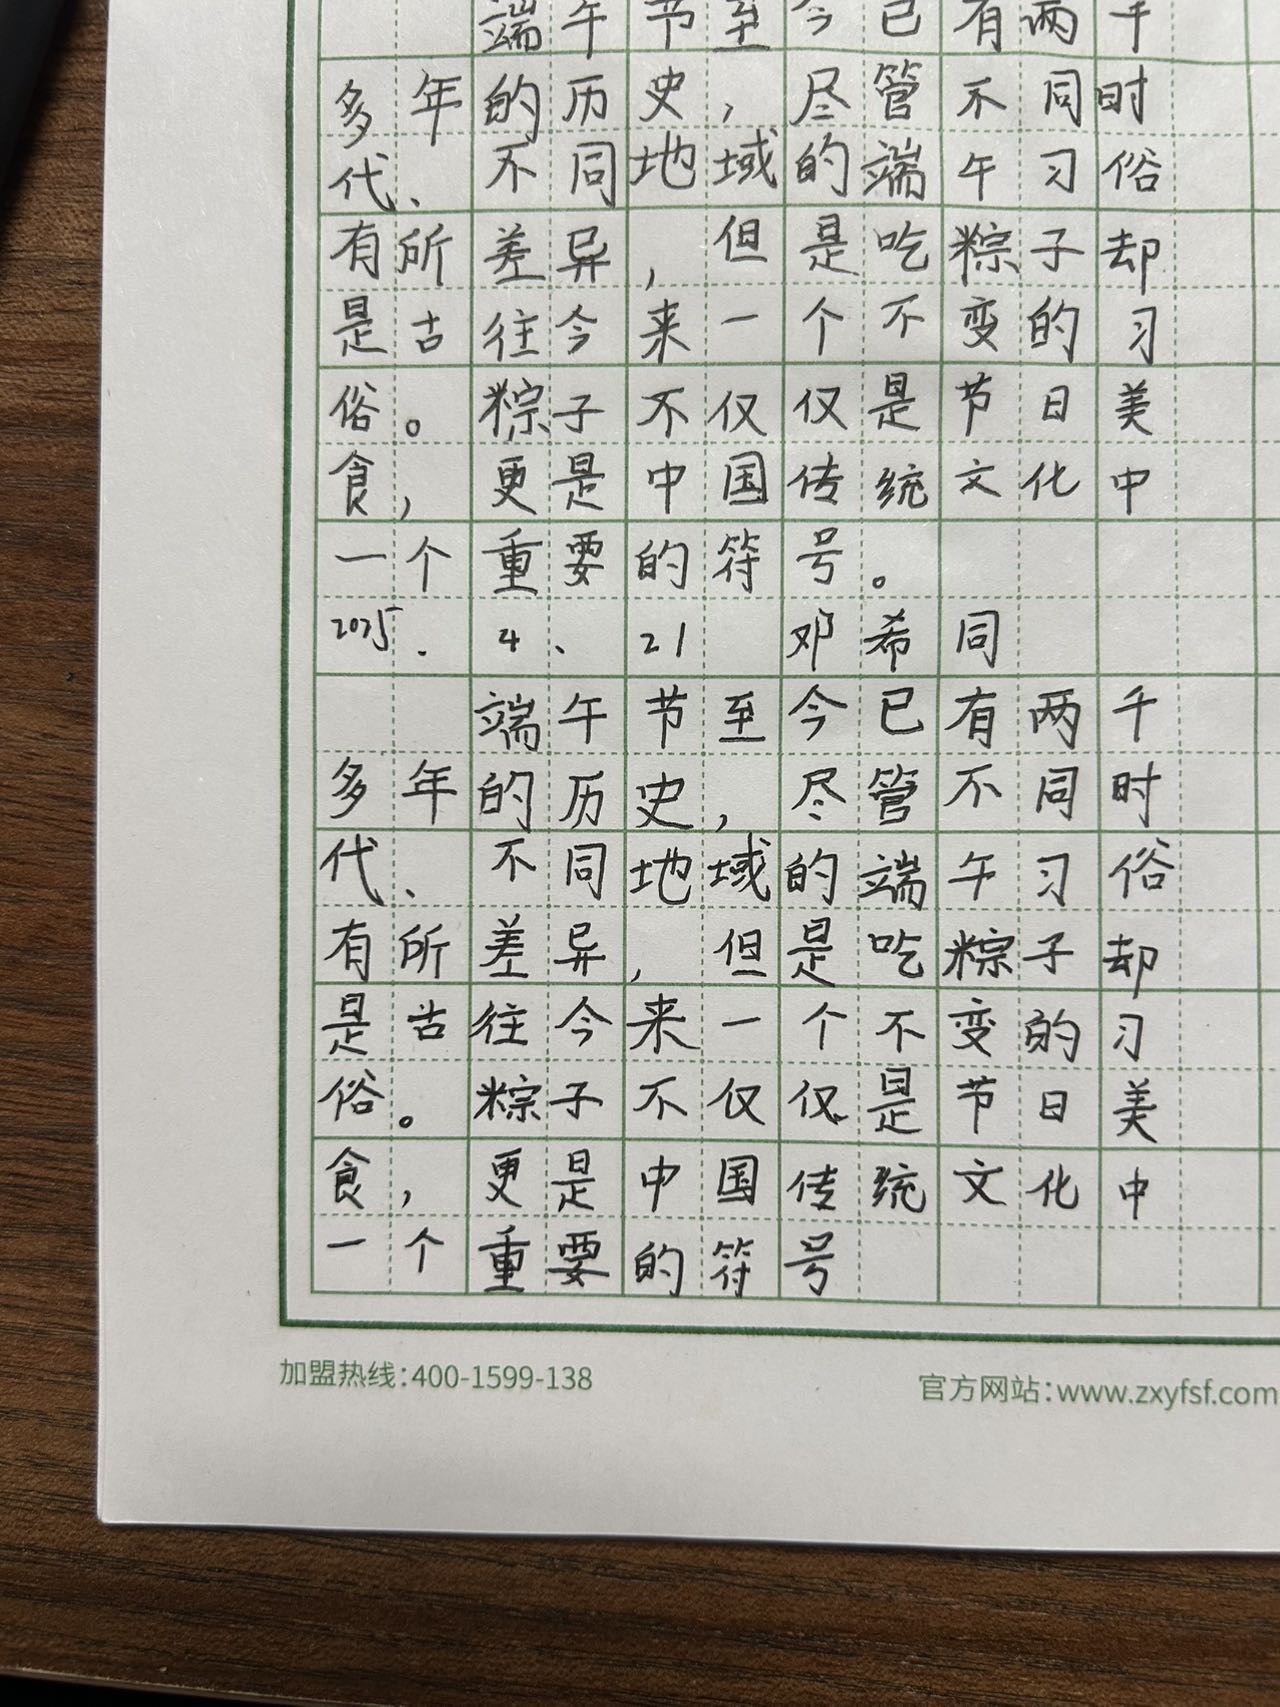 端午节至今已有两千
多年的历史，尽管不同时
代、不同地域的端午习俗
有所差异，但是吃粽子却
是古往今来一个不变的习
俗。粽子不仅仅是节日美
食，更是中国传统文化中
一个重要的符号。
2025.4、21 邓希同
端午节至今已有两千
多年的历史，尽管不同时
代、不同地域的端午习俗
有所差异，但是吃粽子却
是古往今来一个不变的习
俗。粽子不仅仅是节日美
食，更是中国传统文化中
一个重要的符号
加盟热线:400-1599-138
官方网站:www.zxyfsf.com